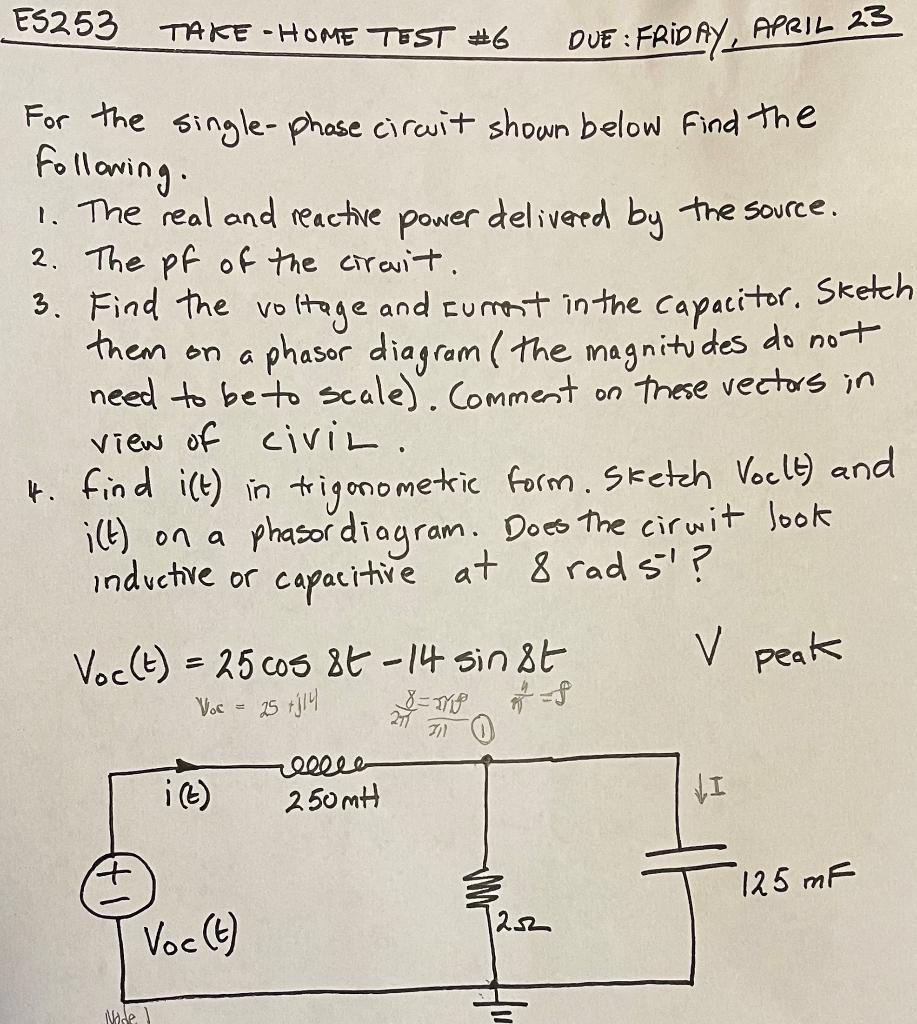 ES253 TAKE-HOME TEST #6 DUE: FRIDAY, APRIL 23
For the single-phase circuit shown below Find the
Following.
1. The real and reactive power delivered by the source.
2. The pf of the circuit.
3. Find the voltage and current in the capacitor. Sketch
them on a phasor diagram (the magnitudes do not
need to be to scale). Comment on these vectors in
view of CIVIL.
4. find i(t) in trigonometric form. Sketch Voc(t) and
i(t) on a phasor diagram. Does the circuit look
inductive or capacitive at 8 rad s⁻¹?
Voc(t) = 25 cos 8t - 14 sin 8t V peak
Voc = 25 + j14
1
i(t) 250mH ↓I
+
-
Voc(t) 2Ω 125 mF
Node 1